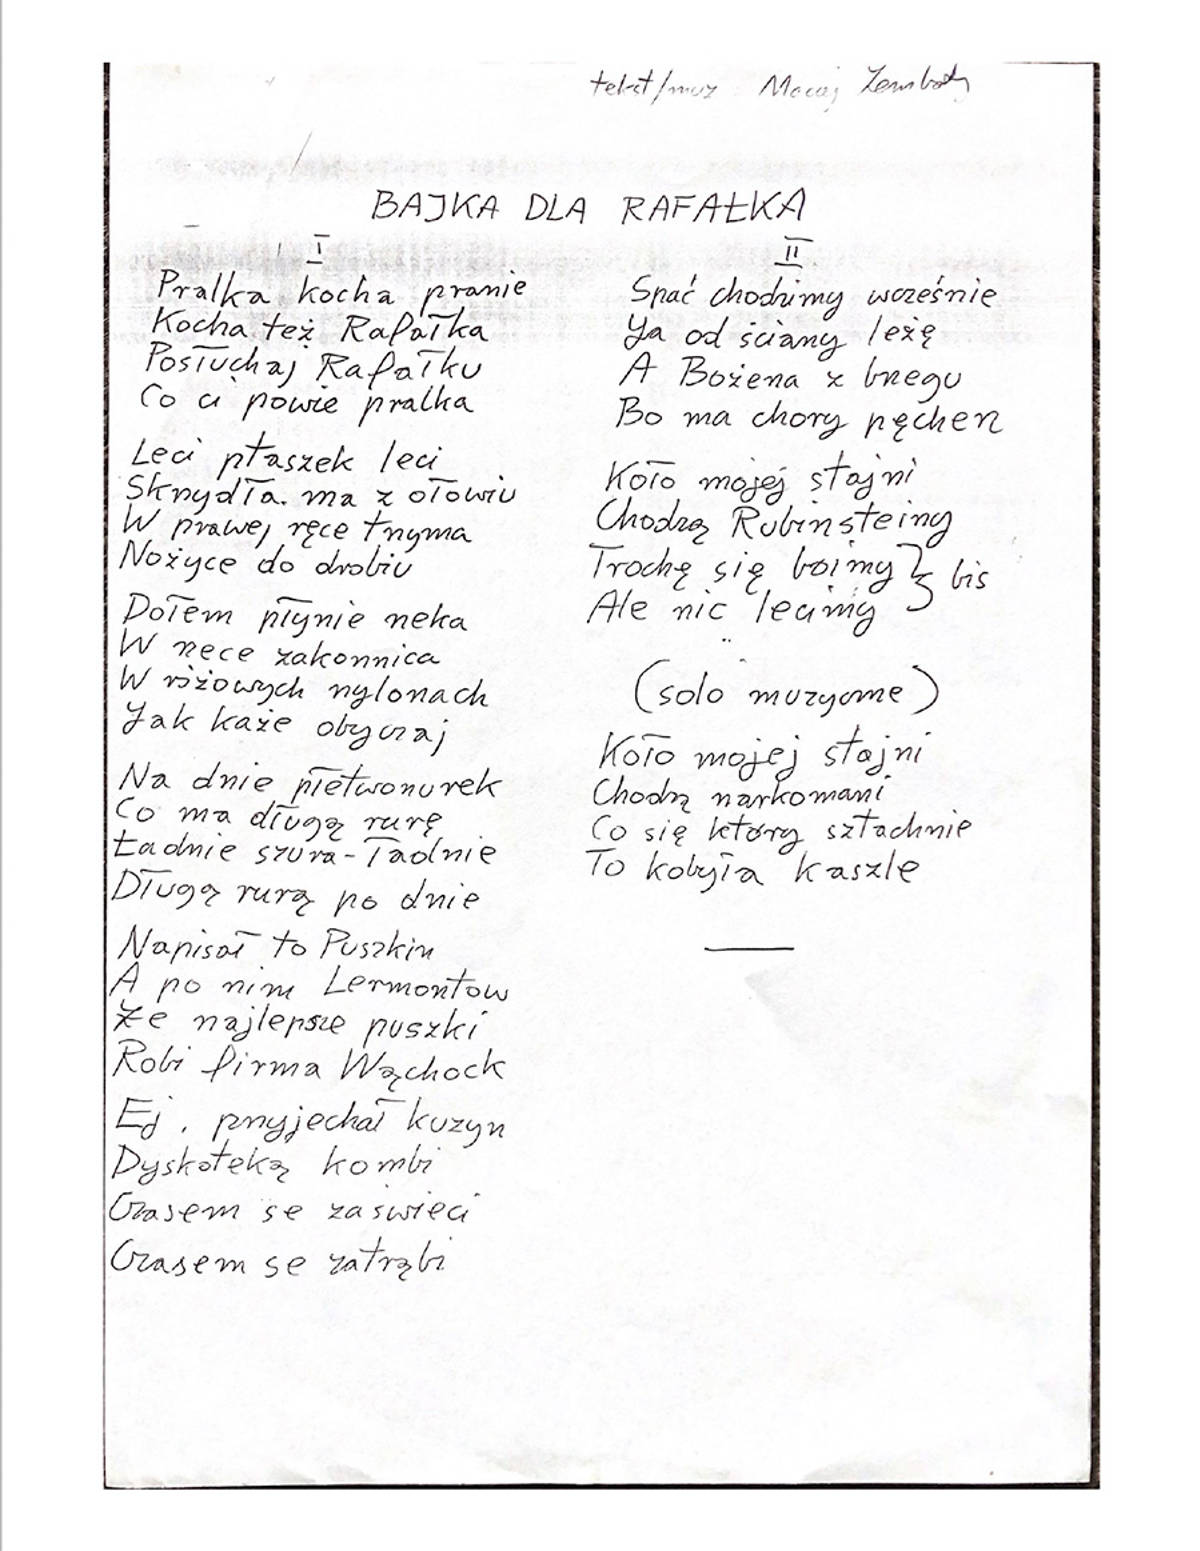 tekst/muz Maciej Zembaty
BAJKA DLA RAFAŁKA
I
Pralka kocha pranie
Kocha też Rafałka
Posłuchaj Rafałku
Co ci powie pralka
Leci ptaszek leci
Skrzydła ma z ołowiu
W prawej ręce trzyma
Nożyce do drobiu
Dołem płynie rzeka
W rzece zakonnica
W różowych nylonach
Jak każe obyczaj
Na dnie płetwonurek
Co ma długą rurę
Ładnie szura - ładnie
Długą rurą po dnie
Napisał to Puszkin
A po nim Lermontow
Że najlepsze puszki
Robi firma Wąchock
Ej, przyjechał kuzyn
Dyskoteką kombi
Czasem se zaświeci
Czasem se zatrąbi
II
Spać chodzimy wcześnie
Ja od ściany leżę
A Bożena z brzegu
Bo ma chory pęcherz
Koło mojej stajni
Chodzą Rubinsteiny
Trochę się boimy
Ale nic lecimy } bis
(solo muzyczne)
Koło mojej stajni
Chodzą narkomani
Co się który sztachnie
To kobyła kaszle